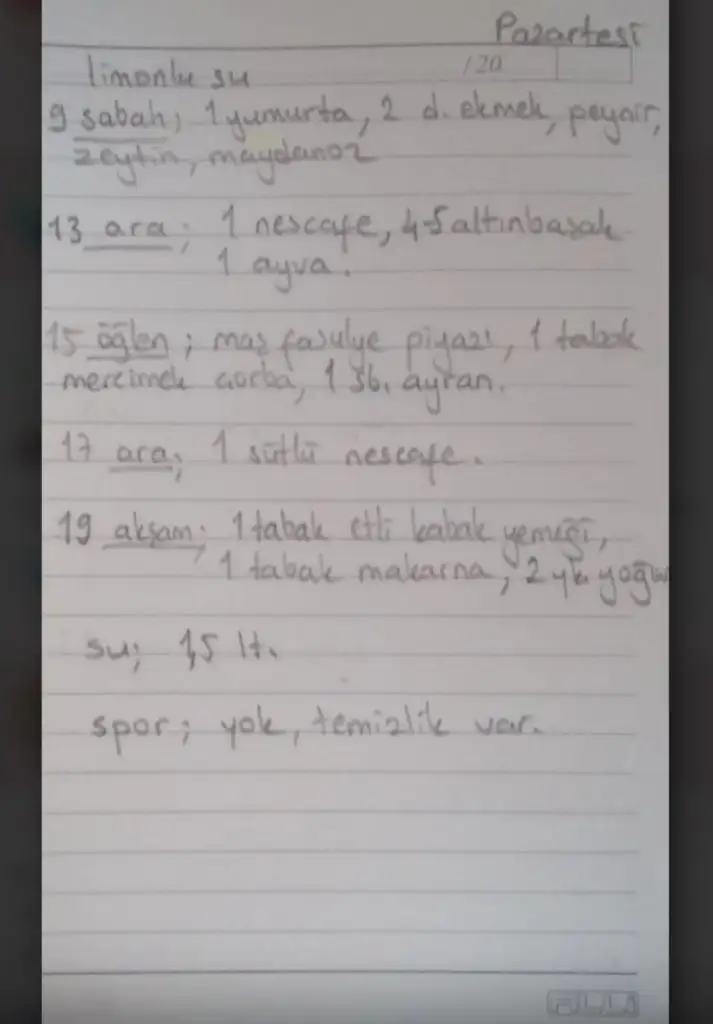 Pazartesi
/20
limonlu su
9 sabah; 1 yumurta, 2 d. ekmek, peynir,
zeytin, maydanoz
13 ara; 1 nescafe, 4-5 altınbaşak
1 ayva.
15 öğlen; maş fasulye piyazı, 1 tabak
mercimek çorba, 1 şb. ayran.
17 ara; 1 sütlü nescafe.
19 akşam; 1 tabak etli kabak yemeği,
1 tabak makarna, 2 yk yoğu
su; 1,5 lt.
spor; yok, temizlik var.